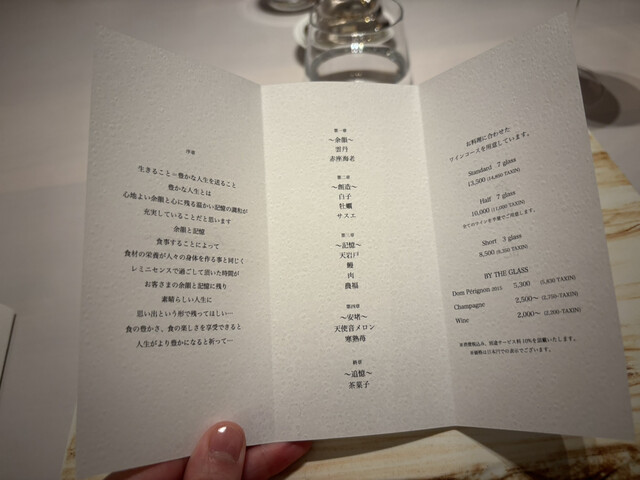 序章
生きること＝豊かな人生を送ること
豊かな人生とは
心地よい余韻と心に残る温かい記憶の調和が
充実していることだと思います
余韻と記憶
食事することによって
食材の栄養が人々の身体を作る事と同じく
レミニセンスで過ごして頂いた時間が
お客さまの余韻と記憶に残り
素晴らしい人生に
思い出という形で残ってほしい…
食の豊かさ、食の楽しさを享受できると
人生がより豊かになると祈って…
第一章
～余韻～
雲丹
赤座海老
第二章
～創造～
白子
牡蠣
サスエ
第三章
～記憶～
天岩戸
鰻
肉
農福
第四章
～安堵～
天使音メロン
寒熟苺
終章
～追憶～
茶菓子
お料理に合わせた
ワインコースを用意しています。
Standard 7 glass
13,500 (14,850 TAXIN)
Half 7 glass
10,000 (11,000 TAXIN)
全てのワインを半量でご用意します。
Short 3 glass
8,500 (9,350 TAXIN)
BY THE GLASS
Dom Pérignon 2015 5,300 (5,830 TAXIN)
Champagne 2,500～ (2,750-TAXIN)
Wine 2,000～ (2,200-TAXIN)
※消費税込み、別途サービス料 10%を頂戴いたします。
※価格は日本円での表示でございます。